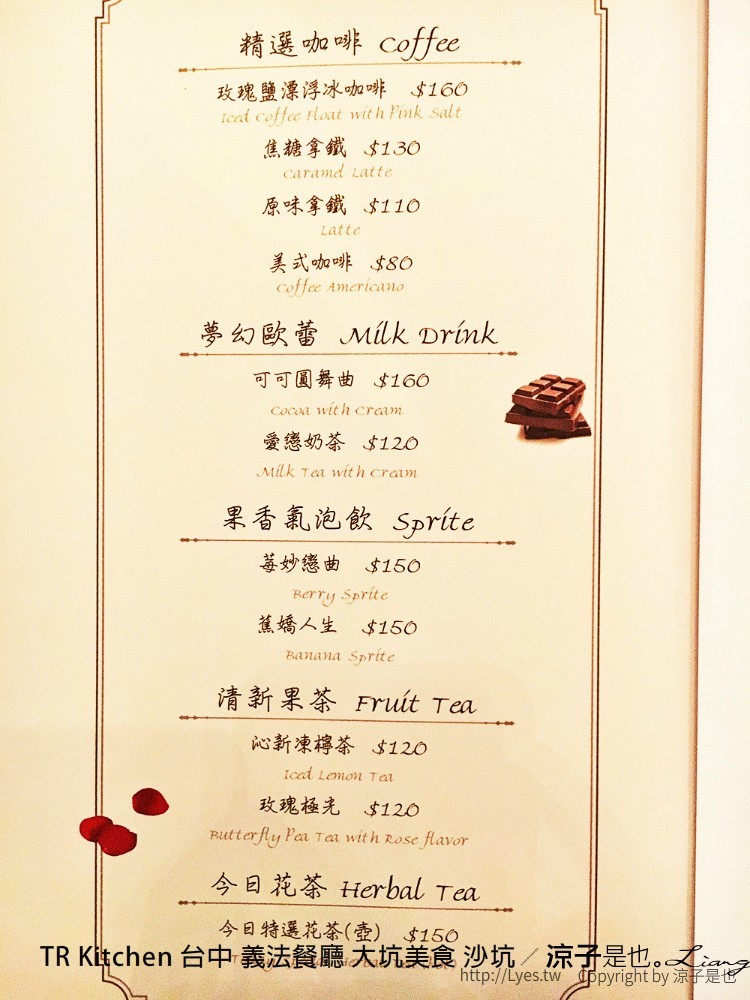 精選咖啡 Coffee
玫瑰鹽漂浮冰咖啡 $160
Iced Coffee Float with Pink Salt
焦糖拿鐵 $130
Caramel Latte
原味拿鐵 $110
Latte
美式咖啡 $80
Coffee Americano
夢幻歐蕾 Milk Drink
可可圓舞曲 $160
Cocoa with Cream
愛戀奶茶 $120
Milk Tea with Cream
果香氣泡飲 Sprite
莓妙戀曲 $150
Berry Sprite
蕉嬌人生 $150
Banana Sprite
清新果茶 Fruit Tea
沁新凍檸茶 $120
Iced Lemon Tea
玫瑰極光 $120
Butterfly Pea Tea with Rose flavor
今日花茶 Herbal Tea
今日特選花茶(壺) $150
TR Kitchen 台中 義法餐廳 大坑美食 沙坑／涼子是也。Liang
http://Lyes.tw Copyright by 涼子是也